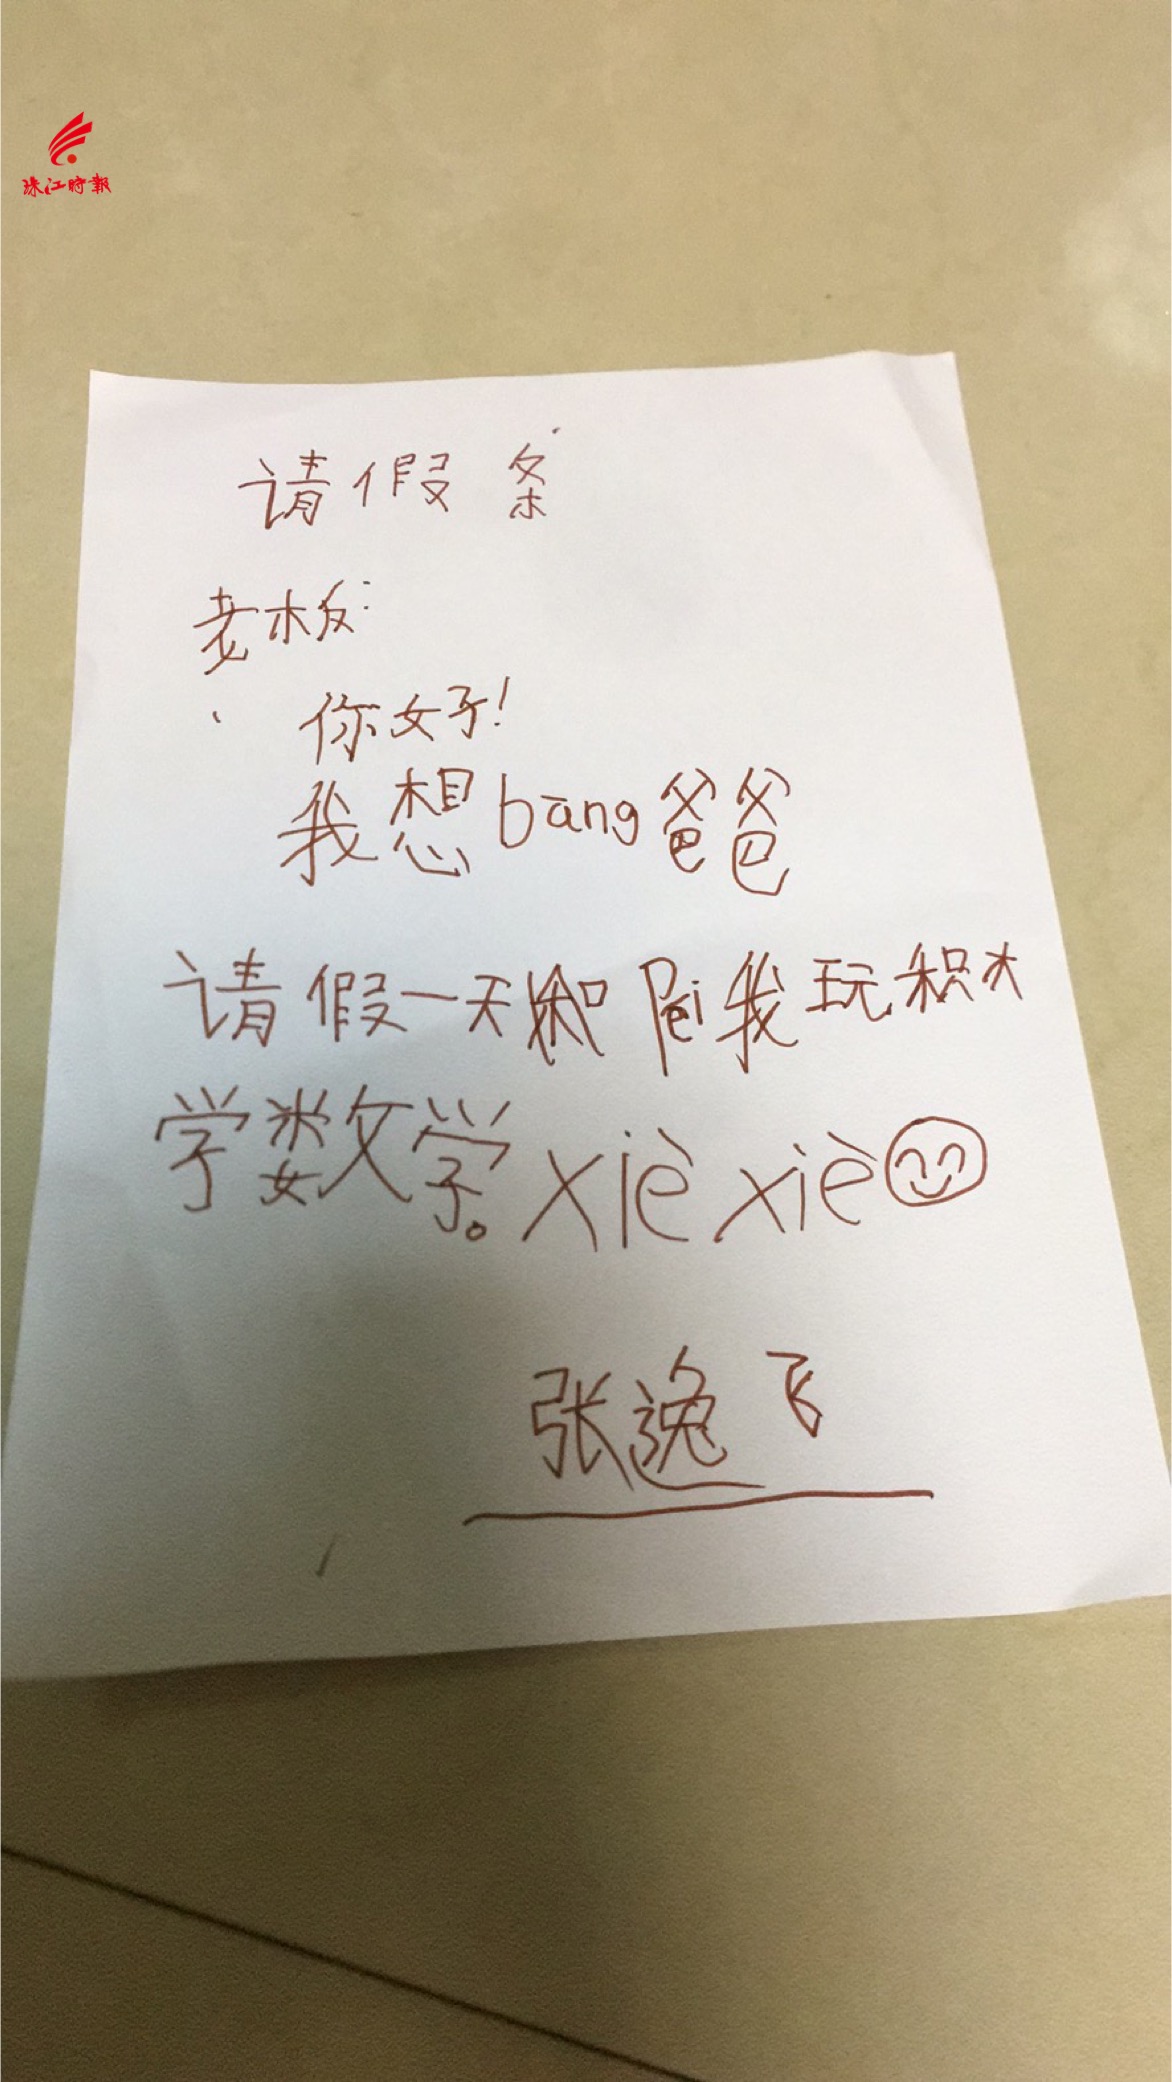 珠江時報
请假条
老板:
你好!
我想bāng爸爸
请假一天和Péi我玩积木
学数学。xiè xiè
张逸飞